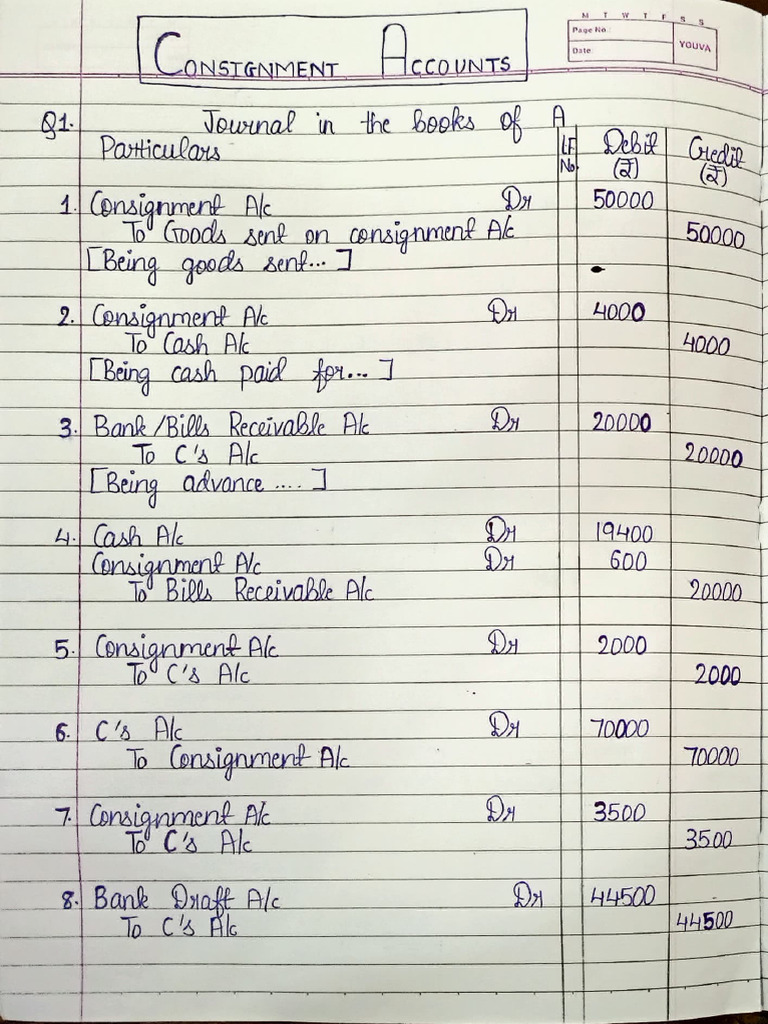 CONSIGNMENT ACCOUNTS
M T W T F S S
Page No.:
Date:
YOUVA
Q1. Journal in the books of A
Particulars L.F. No. Debit (₹) Credit (₹)
1. Consignment A/c Dr 50000
To Goods sent on consignment A/c 50000
[Being goods sent... ]
2. Consignment A/c Dr 4000
To Cash A/c 4000
[Being cash paid for... ]
3. Bank/Bills Receivable A/c Dr 20000
To C's A/c 20000
[Being advance .... ]
4. Cash A/c Dr 19400
Consignment A/c Dr 600
To Bills Receivable A/c 20000
5. Consignment A/c Dr 2000
To C's A/c 2000
6. C's A/c Dr 70000
To Consignment A/c 70000
7. Consignment A/c Dr 3500
To C's A/c 3500
8. Bank Draft A/c Dr 44500
To C's A/c 44500